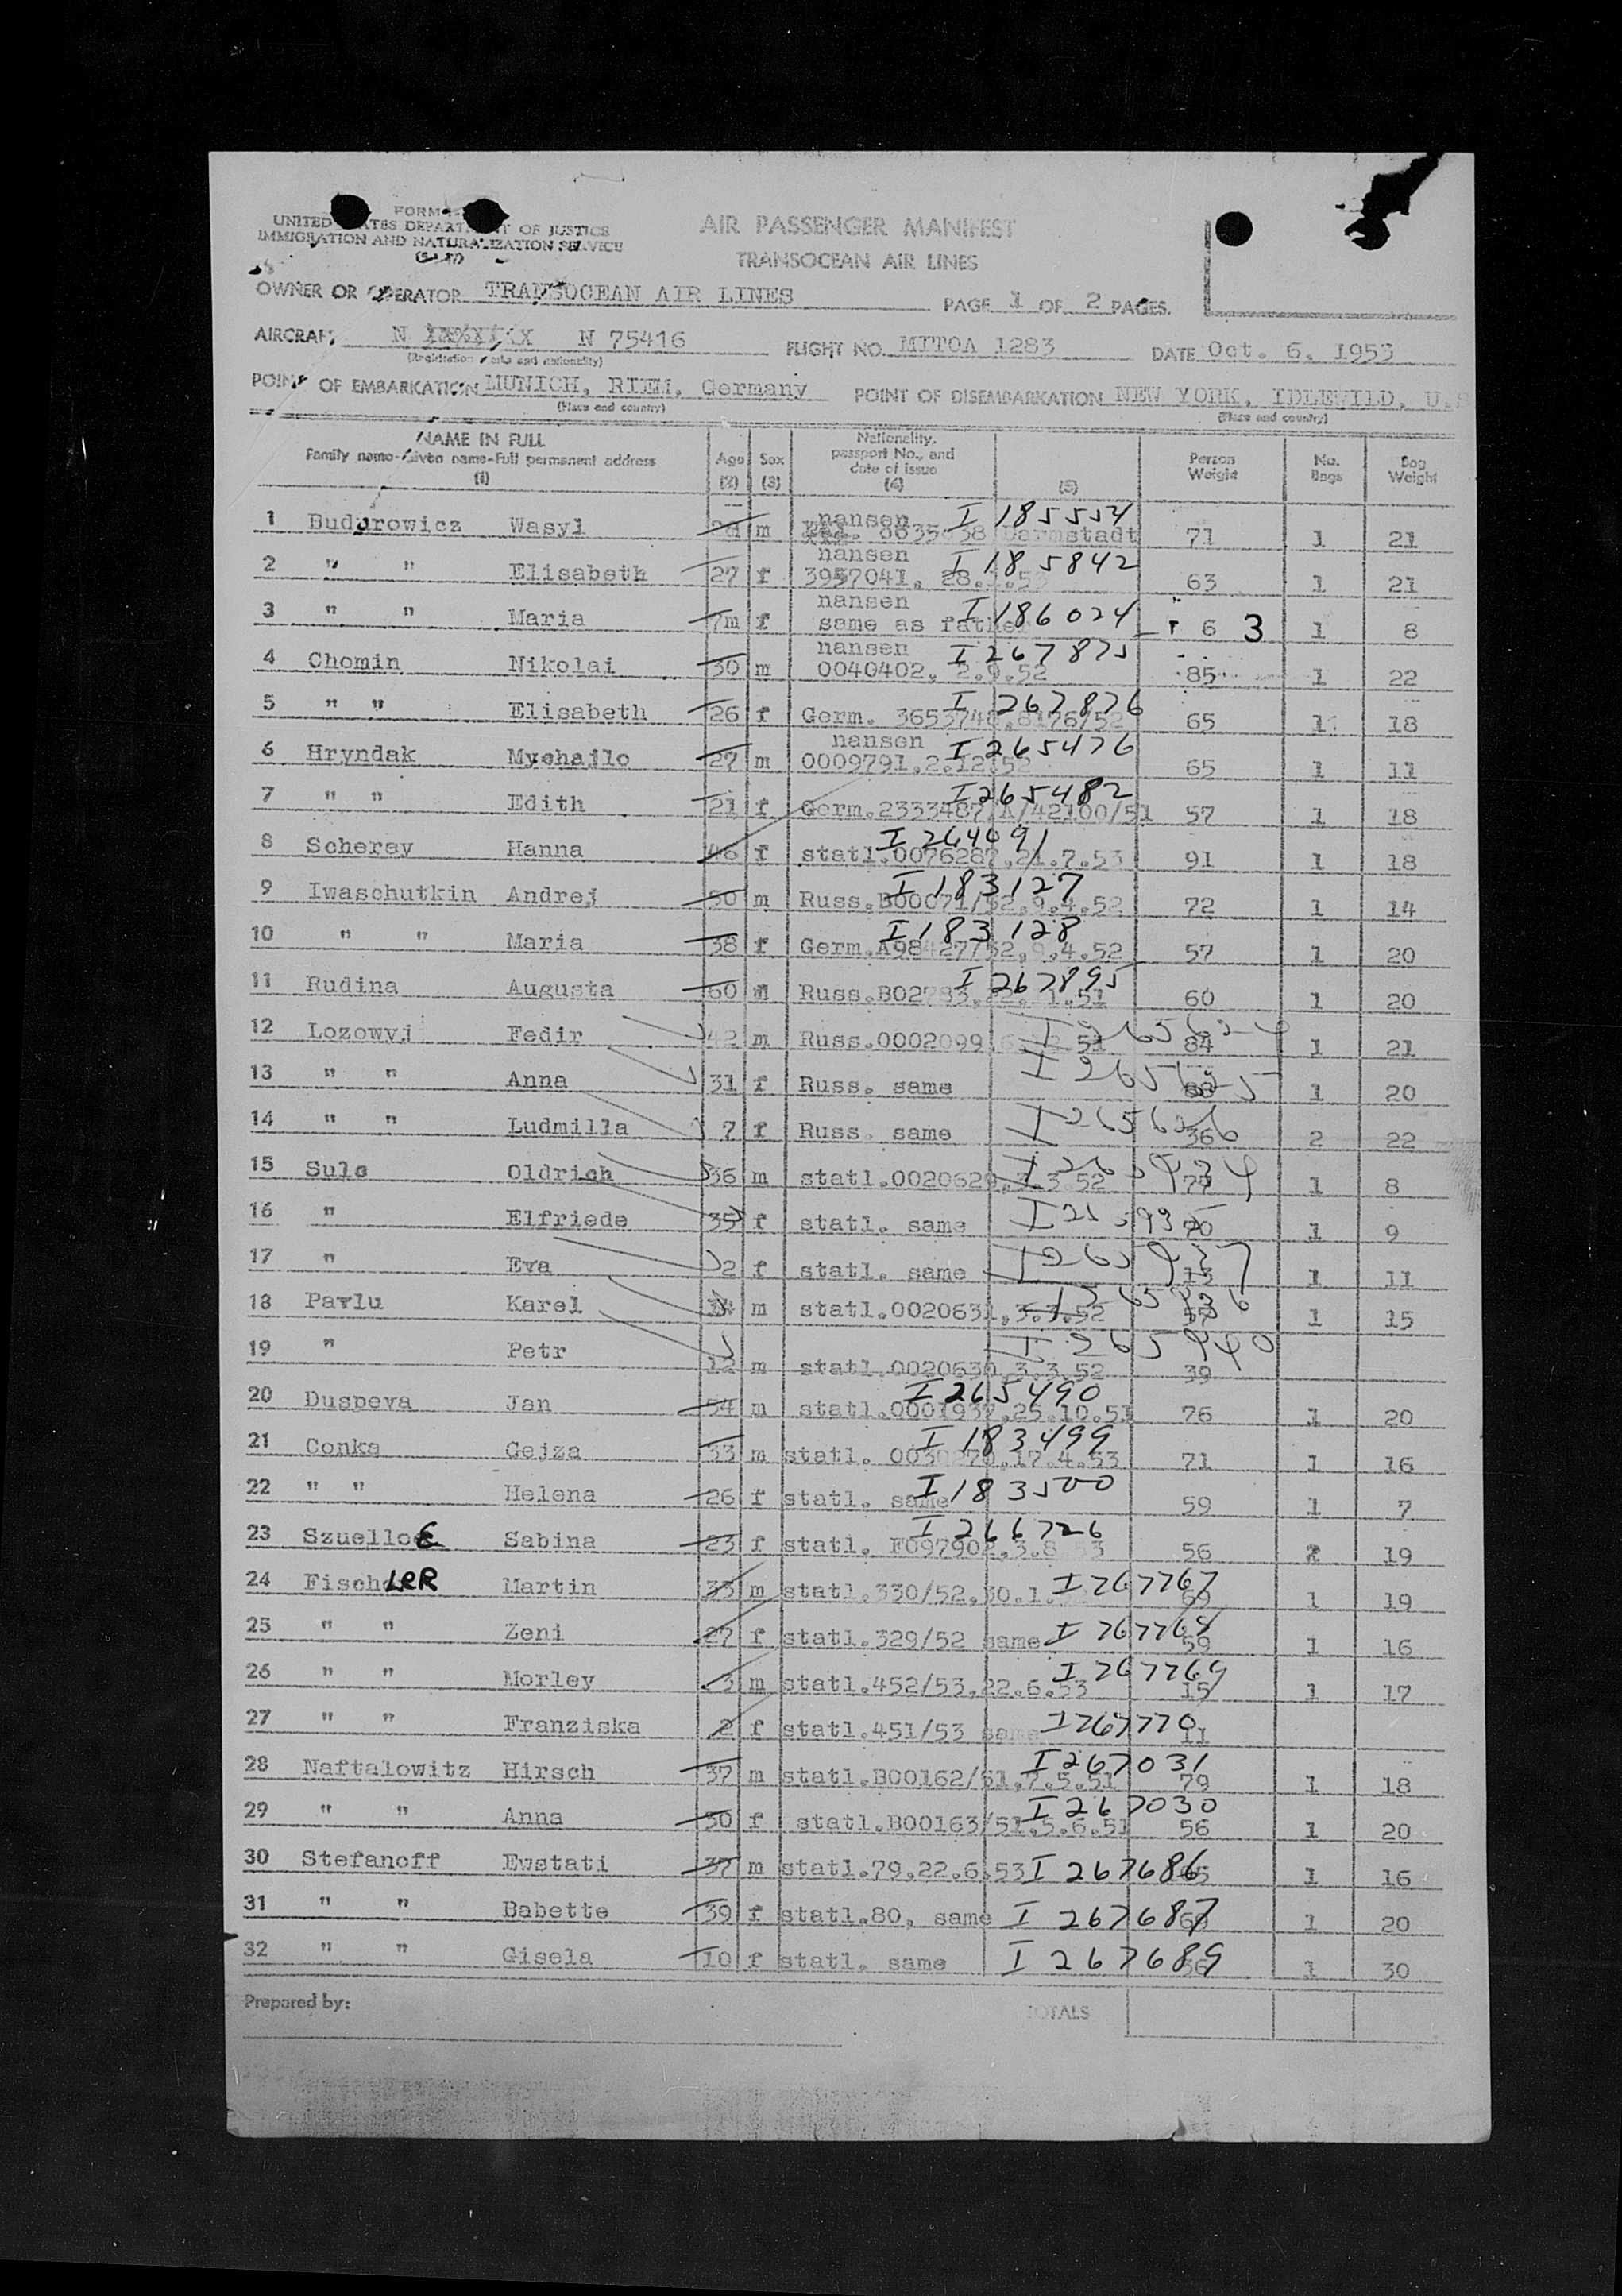 FORM
UNITED STATES DEPARTMENT OF JUSTICE
IMMIGRATION AND NATURALIZATION SERVICE
AIR PASSENGER MANIFEST
TRANSOCEAN AIR LINES
OWNER OR OPERATOR TRANSOCEAN AIR LINES PAGE 1 OF 2 PAGES.
AIRCRAFT N N 75416 FLIGHT NO. MITOA 1283 DATE Oct. 6. 1953
(Registration marks and nationality)
POINT OF EMBARKATION MUNICH, RIEM, Germany POINT OF DISEMBARKATION NEW YORK, IDLEWILD, U.
(Place and country) (Place and country)
NAME IN FULL Family name-Given name-Full permanent address (1) Age (2) Sex (3) Nationality, passport No., and date of issue (4) (5) Person Weight No. Bags Bag Weight
1 Budurowicz Wasyl m nansen I 185554 Darmstadt 71 1 21
2 " " Elisabeth 27 f nansen I 185842 3957041, 63 1 21
3 " " Maria 7m f nansen I 186024 same as father 6 3 1 8
4 Chomin Nikolai 30 m nansen I 267875 0040402, 2.9.52 85 1 22
5 " " Elisabeth 26 f I 267876 Germ. 65 1 18
6 Hryndak Mychajlo 27 m nansen I 265476 0009791,2.12.52 65 1 11
7 " " Edith 21 f I 265482 Germ.2333487/A/42100/51 57 1 18
8 Scheray Hanna 46 f I 264091 statl.0076287,21.7.53 91 1 18
9 Iwaschutkin Andrej 50 m I 183127 Russ.B00071/52,9.4.52 72 1 14
10 " " Maria 38 f I 183128 Germ.A98427/52,9.4.52 57 1 20
11 Rudina Augusta 60 m I 267895 Russ. 60 1 20
12 Lozowyj Fedir 42 m Russ.0002099 51 84 1 21
13 " " Anna 31 f Russ. same I 265625 1 20
14 " " Ludmilla 7 f Russ. same I 265626 36 2 22
15 Sulc Oldrich 36 m statl.0020629,3.3.52 77 1 8
16 " Elfriede 35 f statl. same 1 9
17 " Eva 2 f statl. same 13 1 11
18 Pavlu Karel 14 m statl.0020631,3.3.52 1 15
19 " Petr 12 m I 265940 statl.0020630,3.3.52 39
20 Duspeva Jan 54 m I 265490 statl.0001937,25.10.51 76 1 20
21 Conka Gejza 33 m I 183499 statl. 0030270,17.4.53 71 1 16
22 " " Helena 26 f statl. same I 183500 59 1 7
23 Szuelloe Sabina 23 f I 266726 statl. F097902,3.8.53 56 2 19
24 FischLER Martin 33 m statl.330/52,30.1. I 267767 69 1 19
25 " " Zeni 27 f statl.329/52 same I 267768 59 1 16
26 " " Morley 3 m statl.452/53,22.6.53 I 267769 15 1 17
27 " " Franziska 2 f statl.451/53 same I 267770 11
28 Naftalowitz Hirsch 37 m I 267031 statl.B00162/51,7.5.51 79 1 18
29 " " Anna 30 f I 267030 statl.B00163/51.5.6.51 56 1 20
30 Stefanoff Ewstati 37 m statl.79,22.6.53 I 267686 1 16
31 " " Babette 39 f statl.80, same I 267687 1 20
32 " " Gisela 10 f statl. same I 267689 36 1 30
Prepared by: TOTALS